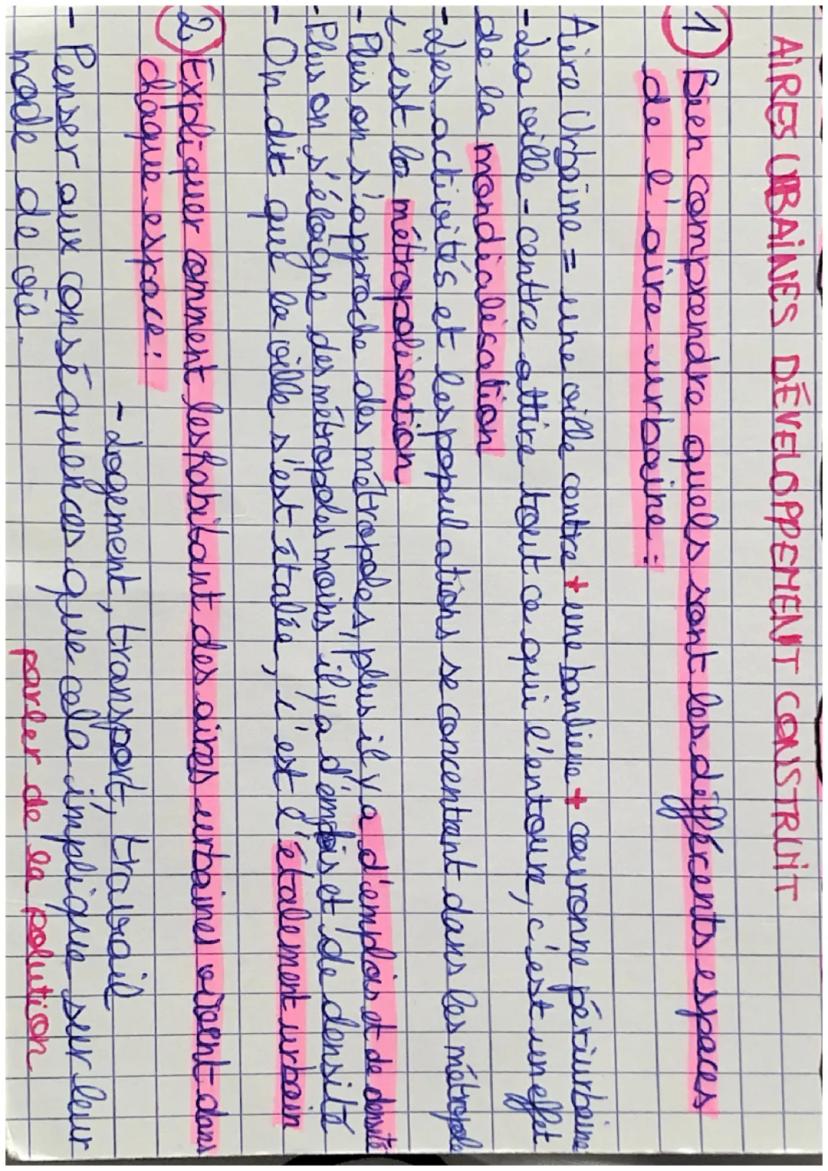 AIRES URBAINES DÉVELOPPEMENT CONSTRUIT
1 Bien comprendre quels sont les différents espaces
de l'aire urbaine :
Aire Urbaine = une ville centre + une banlieue + couronne périurbaine
- La ville-centre attire tout ce qui l'entoure, c'est un effet
de la mondialisation
- Les activités et les populations se concentrent dans les métropole
c'est la métropolisation
- Plus on s'approche des métropoles, plus il y a d'emplois et de densité
- Plus on s'éloigne des métropoles moins il y a d'emplois et de densité
- On dit que la ville s'est étalée, c'est l'étalement urbain
2 Expliquer comment les habitant des aires urbaines vivent dans
chaque espace :
- Logement, transport, travail
- Penser aux conséquences que cela implique sur leur
mode de vie.
parler de la polution